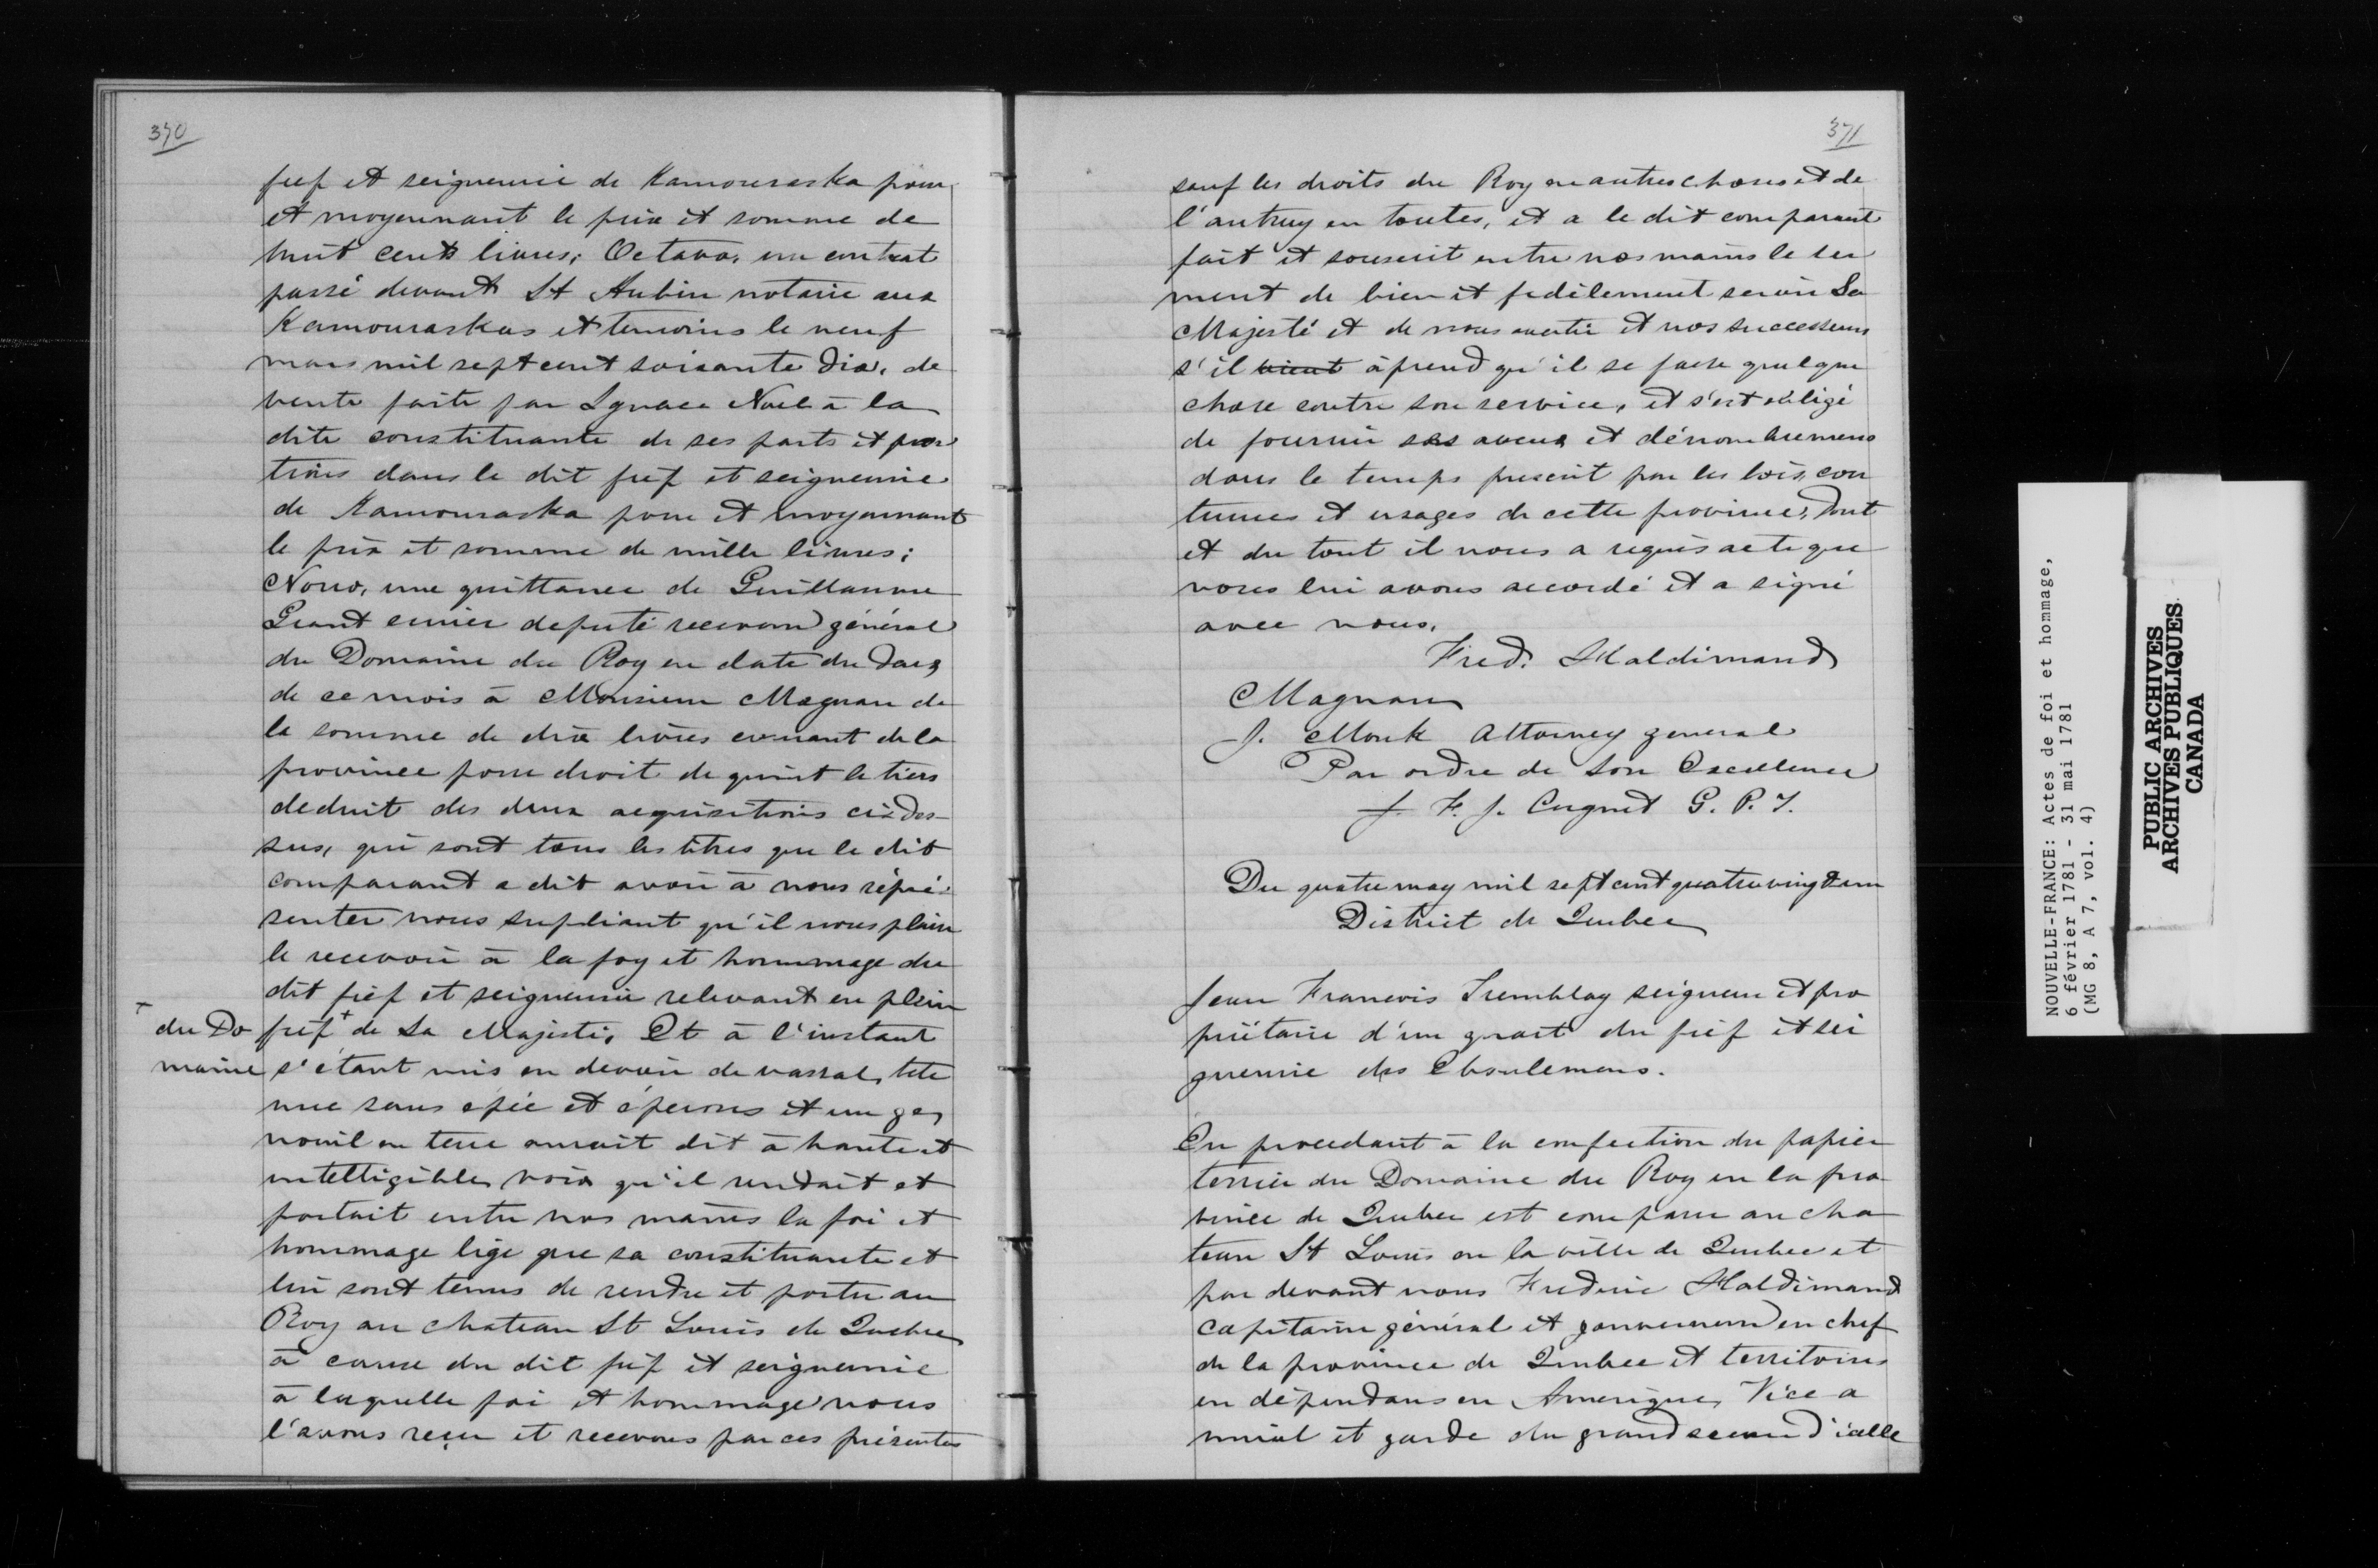 370
fief et seigneurie de Kamouraska pour
et moyennant le prix et somme de
huit cents livres; Octavo, un contrat
passé devant St Aubin notaire aux
Kamouraskas et temoins le neuf
mars mil sept cent soixante dix, de
vente faite par Ignace Noel à la
dite constituante de ses parts et por
tions dans le dit fief et seigneurie
de Kamouraska pour et moyennant
le prix et somme de mille livres;
Nono, une quittance de Guillaume
Grant ecuier deputé receveur général
du Domaine du Roy en date du
de ce mois à Monsieur Magnan de
la somme de dix livres courant de la
province pour droit de quint le tiers
deduit des deux acquisitions ci-des-
sus, qui sont tous les titres que le dit
comparant a dit avoir à nous répré-
senter nous supliant qu'il nous plaise
le recevoir à la foy et hommage du
dit fief et seigneurie relevant en plein
fief + de Sa Majesté, Et à l'instant
+ du Do
maine
s'étant mis en devoir de vassal, tete
nue sans epée et éperons et un ge
nouil en terre auroit dit à haute et
intelligible voix qu'il rendait et
portait entre nos mains la foi et
hommage lige que sa constituante et
lui sont tenus de rendre et porter au
Roy au chateau St Louis de Quebec
à cause du dit fief et seigneurie
à laquelle foi et hommage nous
l'avons reçu et recevons par ces présentes
371
sauf les droits du Roy en autres choses et de
l'autruy en toutes, et a le dit comparant
fait et souscrit entre nos mains le ser
ment de bien et fidèlement servir Sa
Majesté et de nous avertir et nos successeurs
s'il vient àprend qu'il se fasse quelque
chose contre son service, et s'est obligé
de fournir ses aveux et dénombremens
dans le temps prescrit par les lois, cou
tumes et usages de cette province, Dont
et du tout il nous a requis acte que
nous lui avons accordé et a signé
avec nous.
Fred. Haldimand
Magnan
J. Monk Attorney general
Par ordre de Son Excellence
F. J. Cugnet G. P. T.
Du quatre may mil sept cent quatrevingt un
District de Quebec
Jean Francois Tremblay seigneur et pro
priétaire d'un quart du fief et sei
gneurie des Eboulemens.
En procedant à la confection du papier
terrier du Domaine du Roy en la pro
vince de Quebec est comparu au cha
teau St Louis en la ville de Quebec et
par devant nous Frederic Haldimand
capitaine général et gouverneur en chef
de la province de Quebec et territoires
en dépendans en Amerique, Vice a
miral et garde du grand sceau d'icelle
NOUVELLE-FRANCE: Actes de foi et hommage,
6 février 1781 - 31 mai 1781
(MG 8, A 7, vol. 4)
PUBLIC ARCHIVES
ARCHIVES PUBLIQUES
CANADA